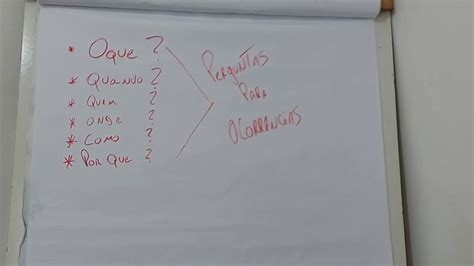 * Oque ?
* Quando ?
* Quem ?
* Onde ?
* Como ?
* Por que ?
Perguntas
Para
Ocorrências